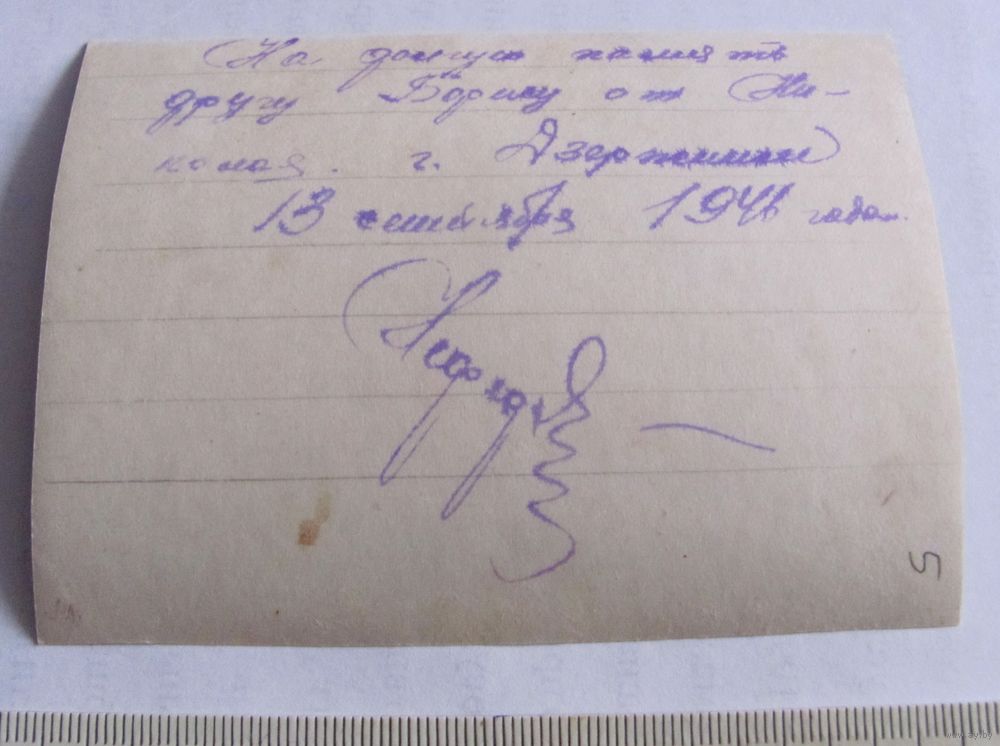 На долгую память
другу Борису от Ни-
колая. г. Дзержинск
13 сентября 1946 года.
5
www.ay.by